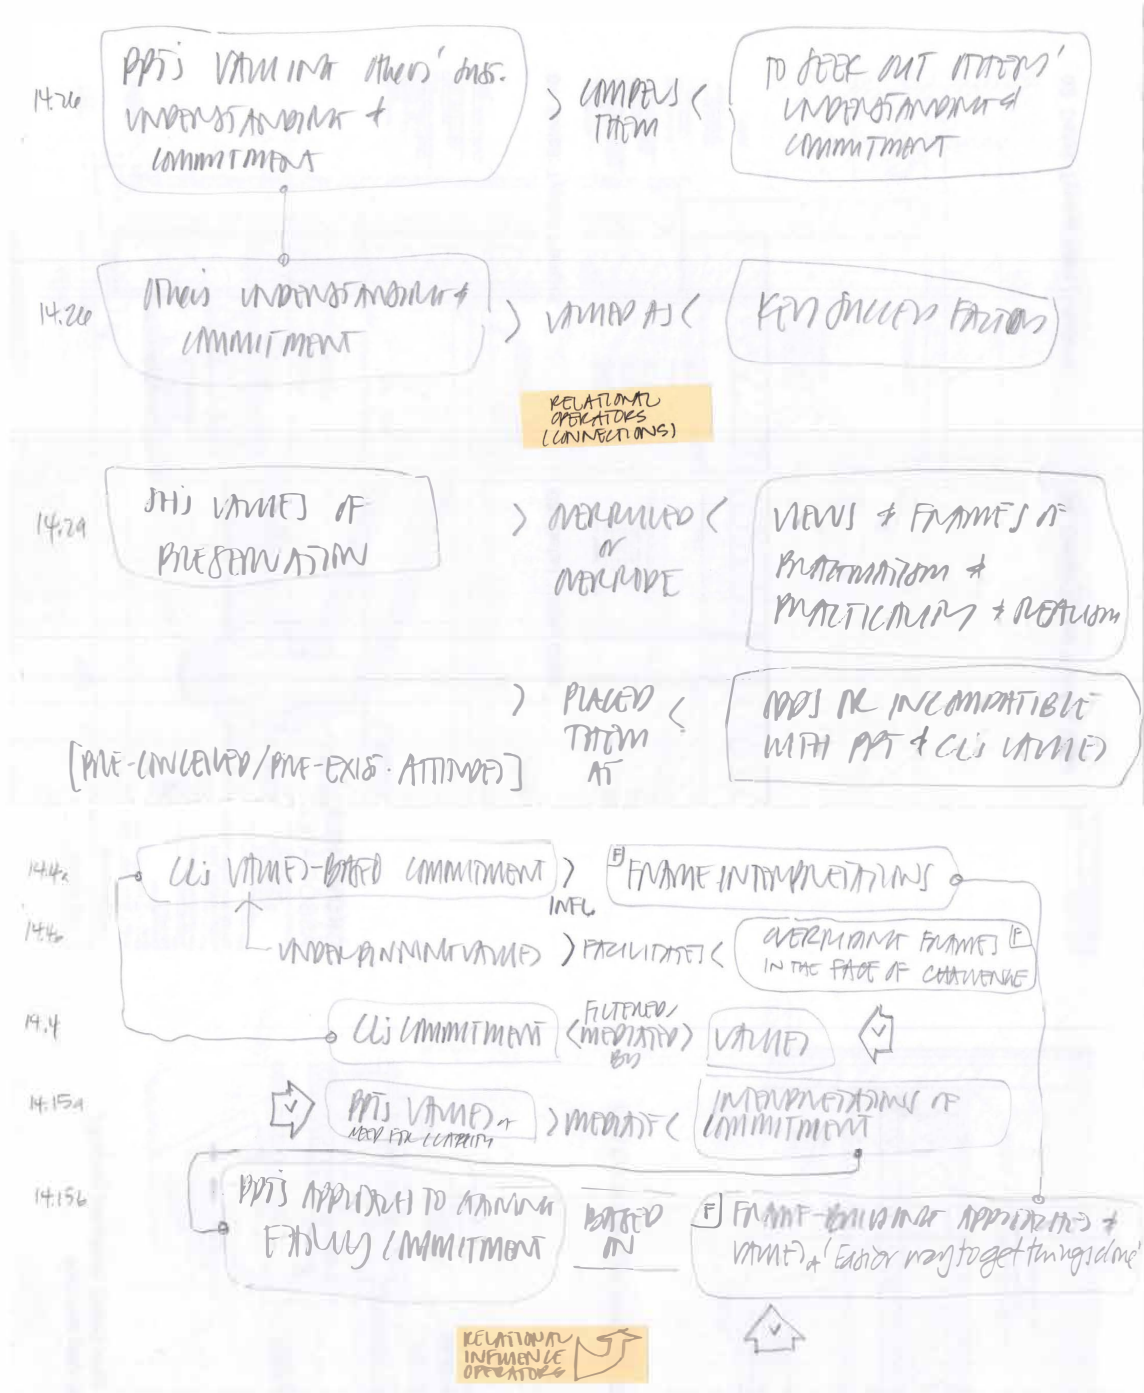 14.26
PPT's VALUING others'
UNDERSTANDING &
COMMITMENT
> COMPELS <
THEM
TO SEEK OUT OTHERS'
UNDERSTANDING &
COMMITMENT
14.26
Others UNDERSTANDING &
COMMITMENT
> VALUED AS <
KEY SUCCESS FACTORS
RELATIONAL
OPERATORS
(CONNECTIONS)
14.29
SH's VALUES OF
PRESERVATION
> OVERRULED <
or
OVERRODE
VIEWS & FRAMES OF
PRAGMATISM &
PRACTICALITY & REALISM
> PLACED <
THEM
AT
ODDS OR INCOMPATIBLE
WITH PPT & CL's VALUES
[PRE-CONCEIVED/PRE-EXIS. ATTITUDES]
14.4a
CL's VALUES-BASED COMMITMENT >
INFL.
F
FRAME INTERPRETATIONS
14.4b
UNDERPINNING VALUES > FACILITATES <
OVERRIDING FRAMES F
IN THE FACE OF CHALLENGE
14.4
CL's COMMITMENT
FILTERED/
< MEDIATED >
BY
VALUES
14.15a
PPT's VALUES
NEED FOR CLARITY
> MEDIATE <
INTERPRETATIONS OF
COMMITMENT
14.15b
PPT's APPROACHES TO GAINING
EARLY COMMITMENT
BASED
ON
F FRAME-BUILDING APPROACHES &
VALUES 'Easier way to get things done'
RELATIONAL
INFLUENCE
OPERATORS